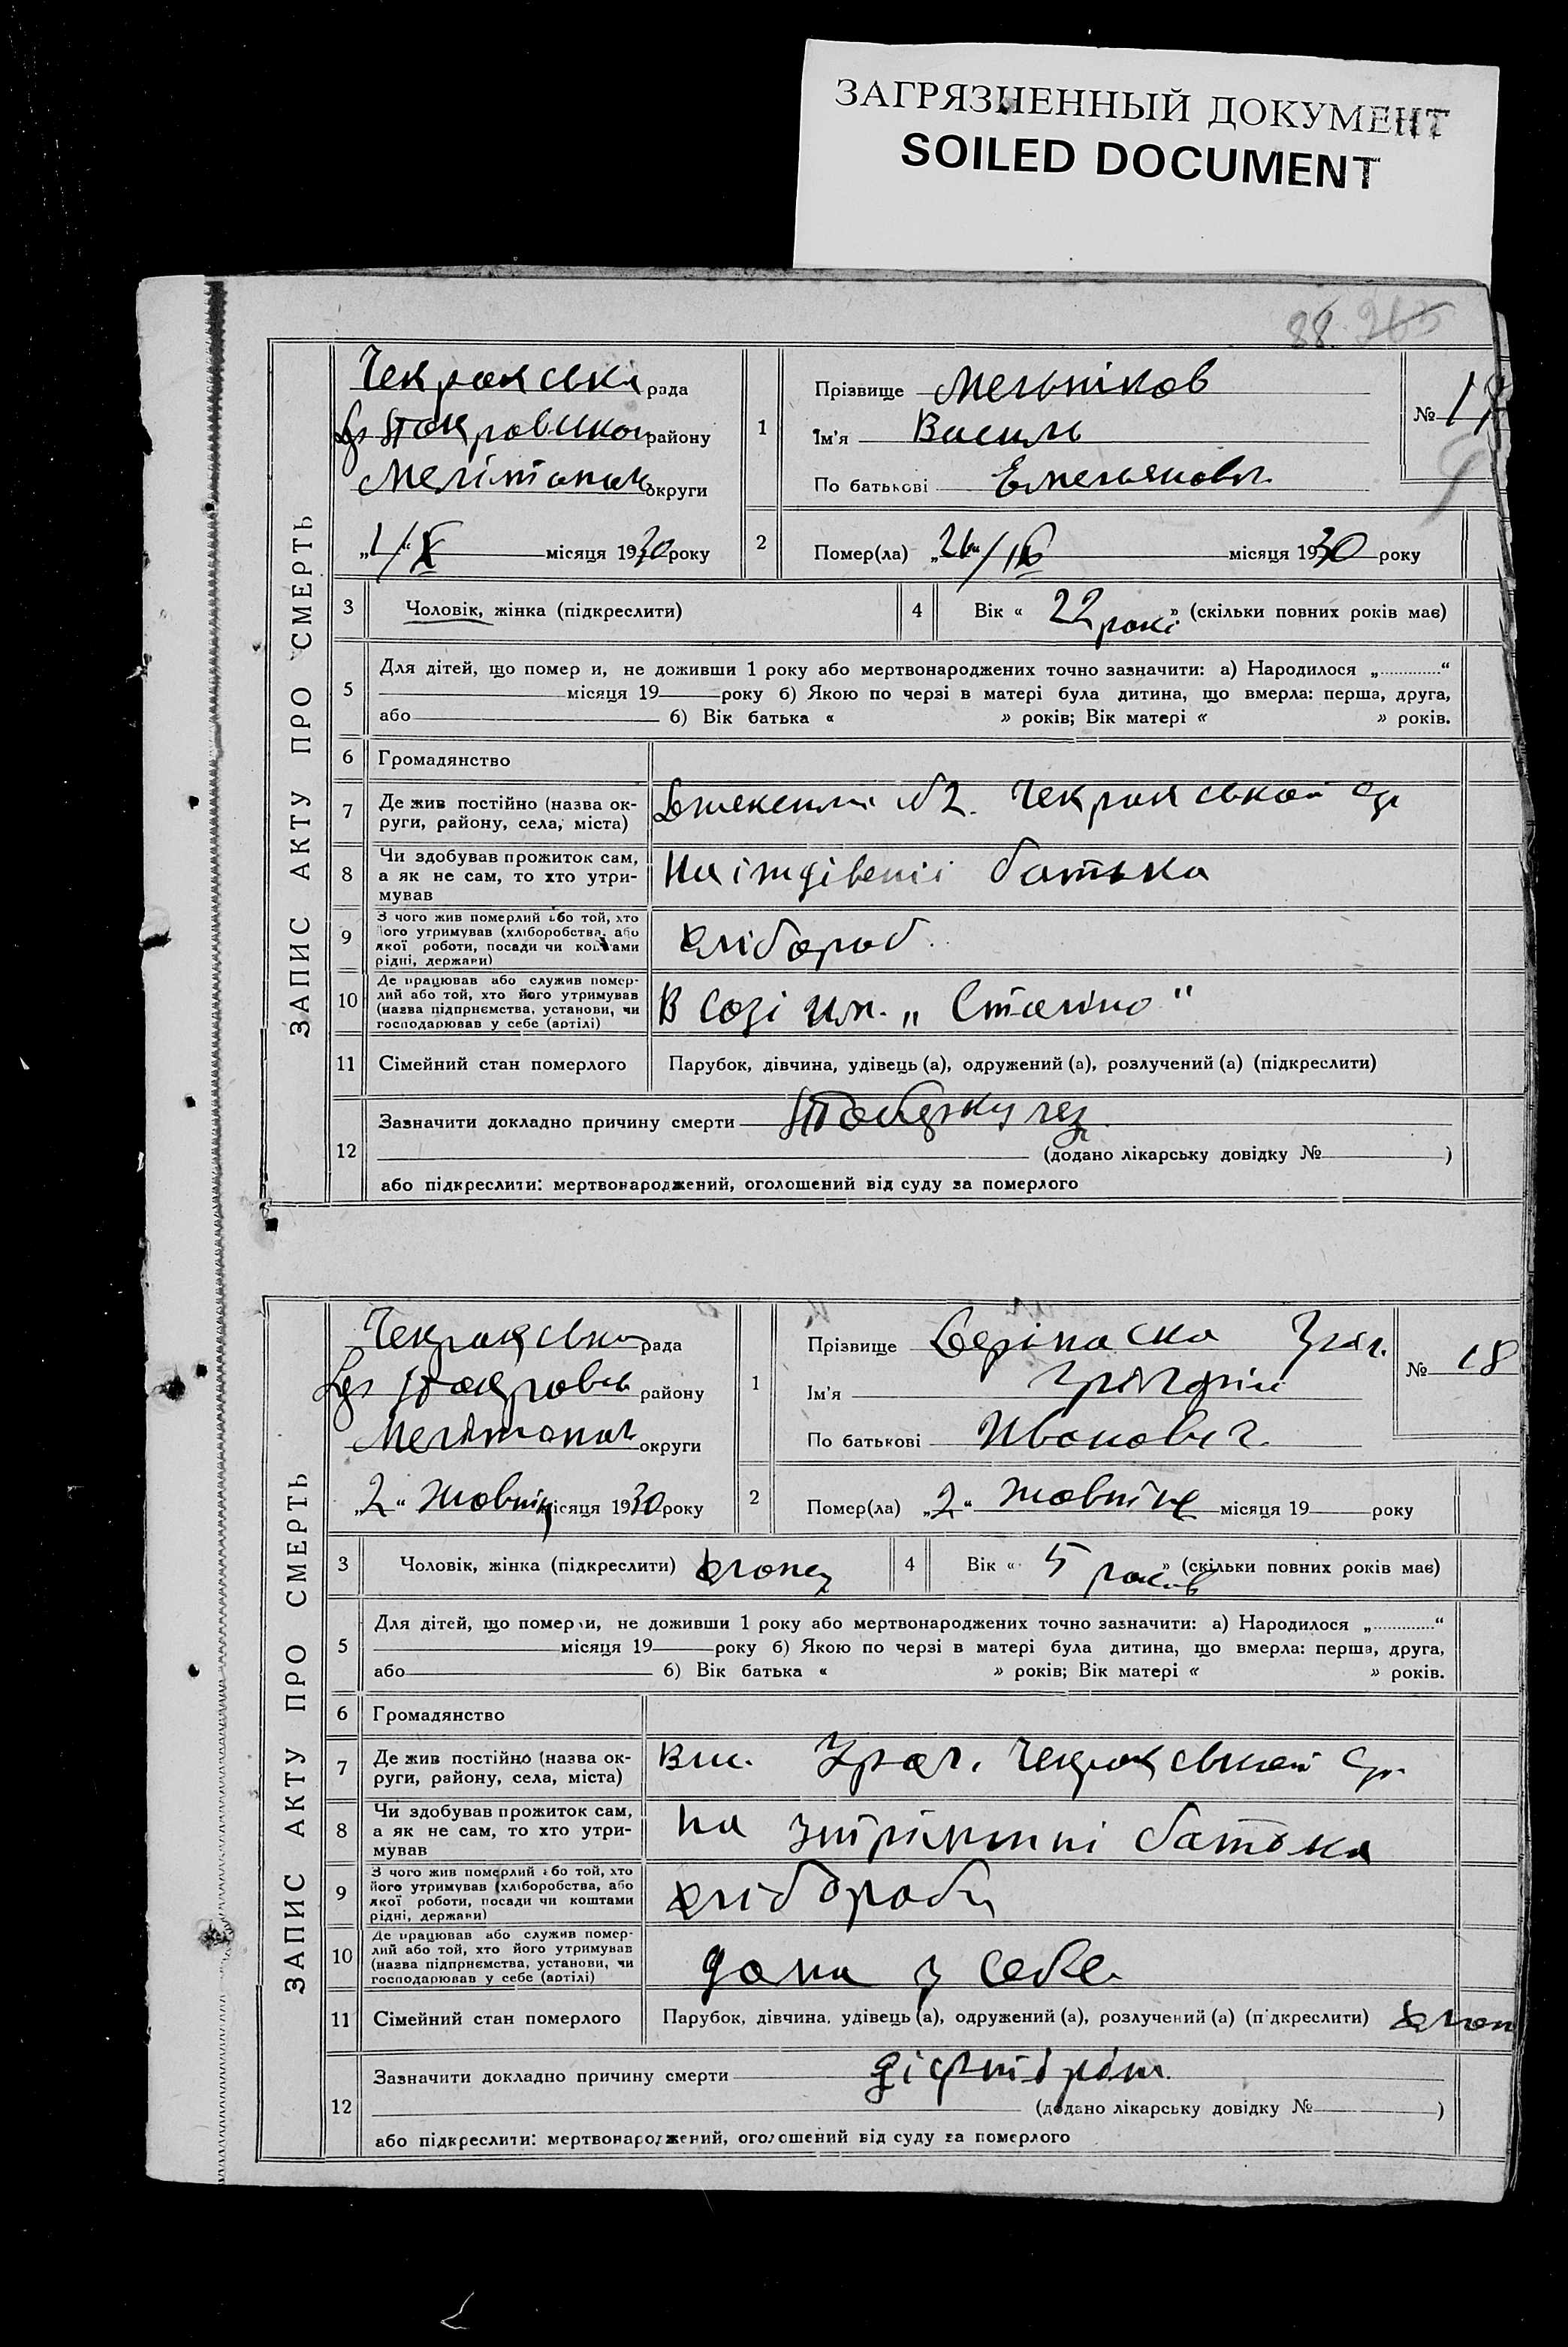 ЗАГРЯЗНЕННЫЙ ДОКУМЕНТ
SOILED DOCUMENT
88. 265
ЗАПИС АКТУ ПРО СМЕРТЬ
Чекракська рада
району
Мелітопол округи
„1“/X місяця 1930 року
1
Прізвище Мельніков
Ім'я Василь
По батькові Емельянович
№ 17
2
Помер(ла) „26“/ місяця 1930 року
3 Чоловік, жінка (підкреслити)
4 Вік « 22 рокі » (скільки повних років має)
5 Для дітей, що помер и, не доживши 1 року або мертвонароджених точно зазначити: а) Народилося „............“
місяця 19 року б) Якою по черзі в матері була дитина, що вмерла: перша, друга,
або б) Вік батька « » років; Вік матері « » років.
6 Громадянство
7 Де жив постійно (назва ок-
руги, району, села, міста)
№2. Чекракськой с/р
8 Чи здобував прожиток сам,
а як не сам, то хто утри-
мував
На іждівенії батька
9 З чого жив померлий або той, хто
його утримував (хліборобства, або
якої роботи, посади чи коштами
рідні, держави)
хлібороб.
10 Де працював або служив помер-
лий або той, хто його утримував
(назва підприємства, установи, чи
господарював у себе (артілі)
В Созі им. „Сталіно"
11 Сімейний стан померлого Парубок, дівчина, удівець (а), одружений (а), розлучений (а) (підкреслити)
12 Зазначити докладно причину смерти
(додано лікарську довідку № )
або підкреслити: мертвонароджений, оголошений від суду за померлого
ЗАПИС АКТУ ПРО СМЕРТЬ
Чекракська рада
району
Мелітопол округи
„2“ Жовтня місяця 1930 року
1
Прізвище Деріпаска
Ім'я Григорій
По батькові Иванович
№ 18
2
Помер(ла) „2“ Жовтня місяця 19 року
3 Чоловік, жінка (підкреслити) хлопец
4 Вік « 5 роков » (скільки повних років має)
5 Для дітей, що помер и, не доживши 1 року або мертвонароджених точно зазначити: а) Народилося „............“
місяця 19 року б) Якою по черзі в матері була дитина, що вмерла: перша, друга,
або б) Вік батька « » років; Вік матері « » років.
6 Громадянство
7 Де жив постійно (назва ок-
руги, району, села, міста)
Чекракськой с/р.
8 Чи здобував прожиток сам,
а як не сам, то хто утри-
мував
на батька
9 З чого жив померлий або той, хто
його утримував (хліборобства, або
якої роботи, посади чи коштами
рідні, держави)
10 Де працював або служив помер-
лий або той, хто його утримував
(назва підприємства, установи, чи
господарював у себе (артілі)
дома у себе
11 Сімейний стан померлого Парубок, дівчина, удівець (а), одружений (а), розлучений (а) (підкреслити) хлоп
12 Зазначити докладно причину смерти
(додано лікарську довідку № )
або підкреслити: мертвонароджений, оголошений від суду за померлого